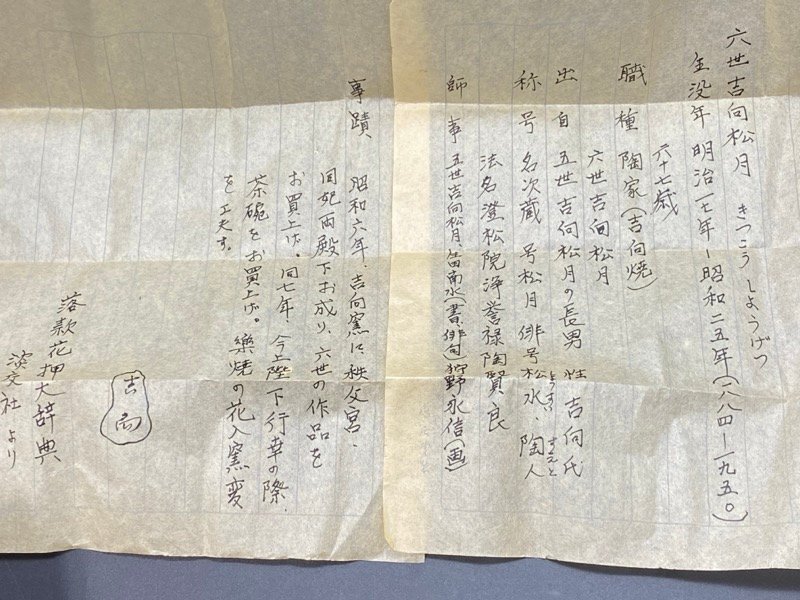 六世吉向松月 きつこうしようげつ
生没年 明治一七年-昭和二五年(一八八四-一九五〇)
六十七歳
職種 陶家(吉向焼)
六世吉向松月
出自 五世吉向松月の長男 姓 吉向氏
称号 名次蔵 号松月 俳号松水・陶人
法名澄松院浄誉禄陶賢良
師事 五世吉向松月、笛南水(書、俳句)狩野永信(画)
事蹟 昭和六年、吉向窯に秩父宮、
同妃両殿下お成り、六世の作品を
お買上げ。同七年、今上陛下行幸の際、
茶碗をお買上げ。樂焼の花入窯変
を工夫す。
吉向
落款花押大辞典
淡交社より